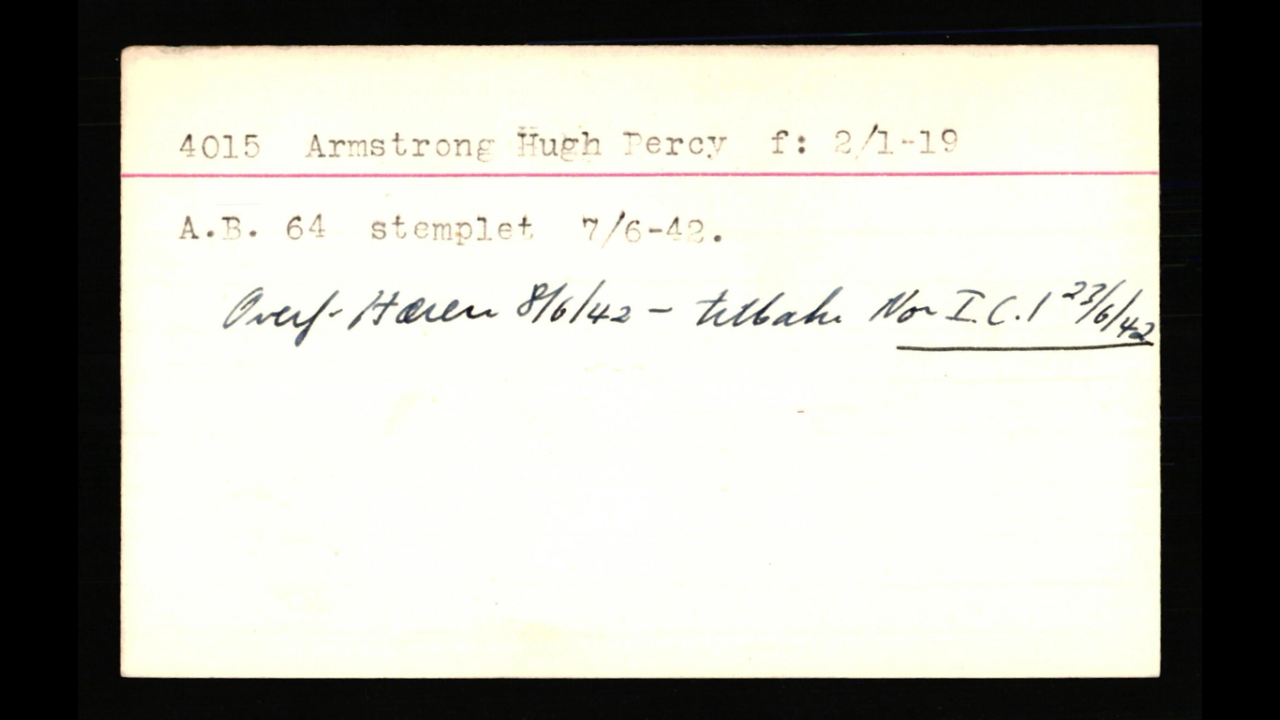 4015 Armstrong Hugh Percy f: 2/1-19
A.B. 64 stemplet 7/6-42.
Overf. Hæren 8/6/42 – tilbake Nor I.C.1 23/6/42